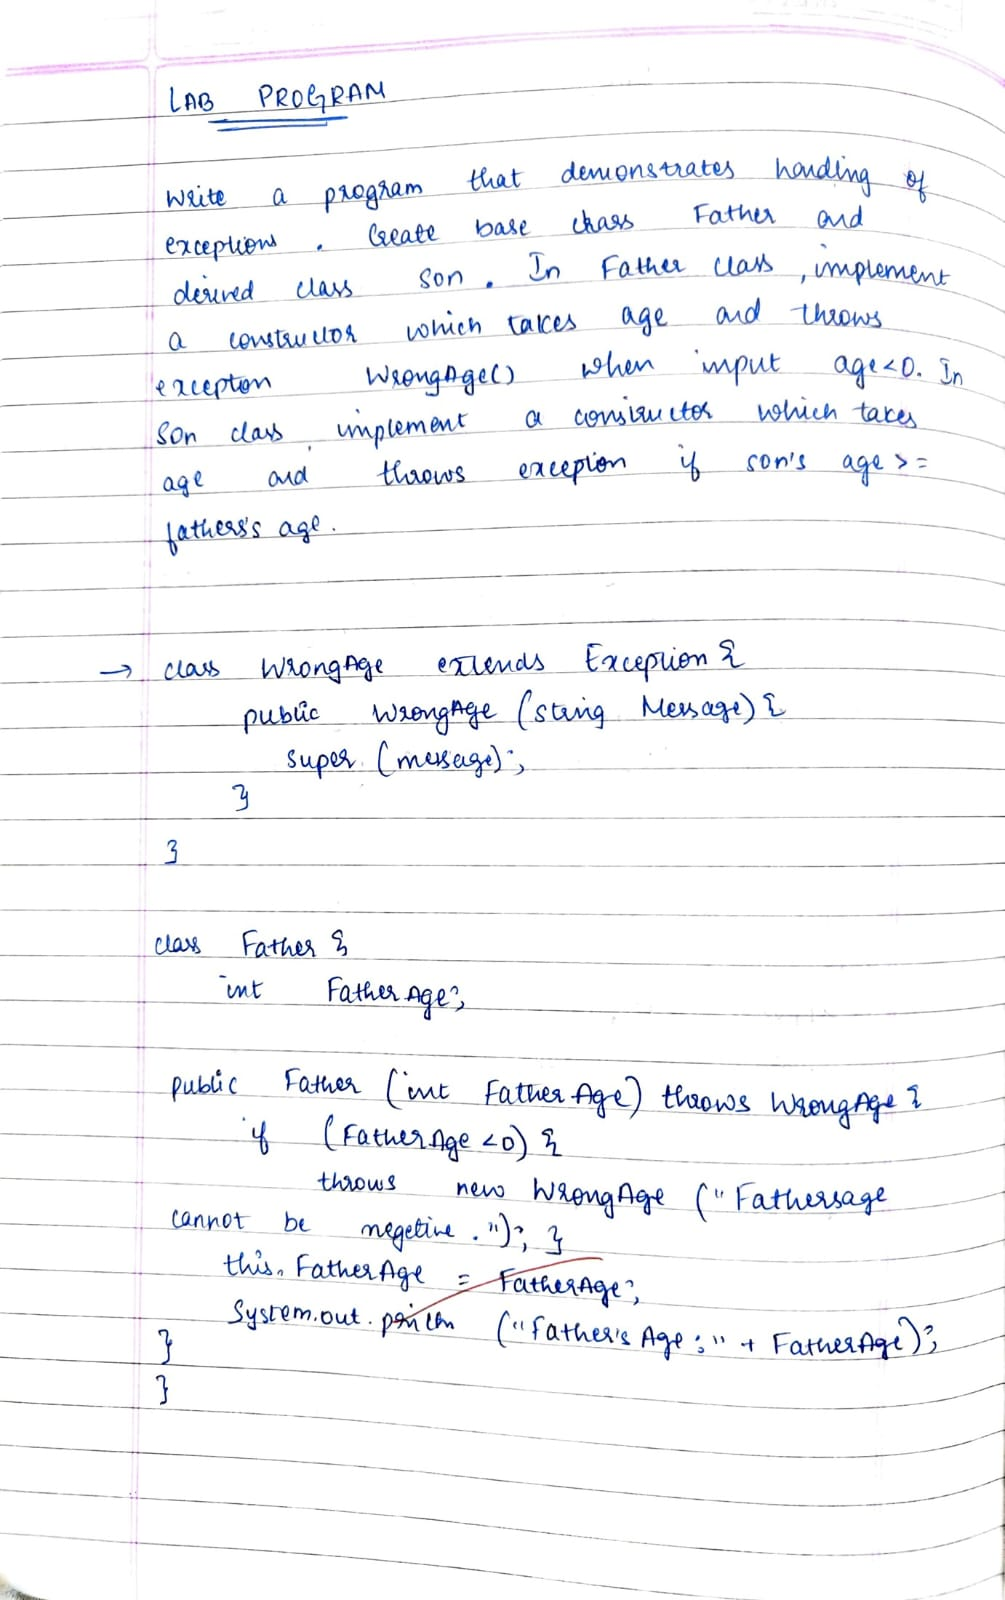 LAB PROGRAM
Write a program that demonstrates handling of
exceptions. Create base class Father and
derived class son. In Father class, implement
a constructor which takes age and throws
exception WrongAge() when input age<0. In
son class implement a constructor which takes
age and throws exception if son's age >=
fathers's age.
→ class WrongAge extends Exception {
public WrongAge (string Message) {
super (message);
}
}
class Father {
int FatherAge;
public Father (int FatherAge) throws WrongAge {
if (FatherAge <0) {
throws new WrongAge ("Fathersage
cannot be negetive."); }
this.FatherAge = FatherAge;
System.out.println ("Father's Age:" + FatherAge);
}
}